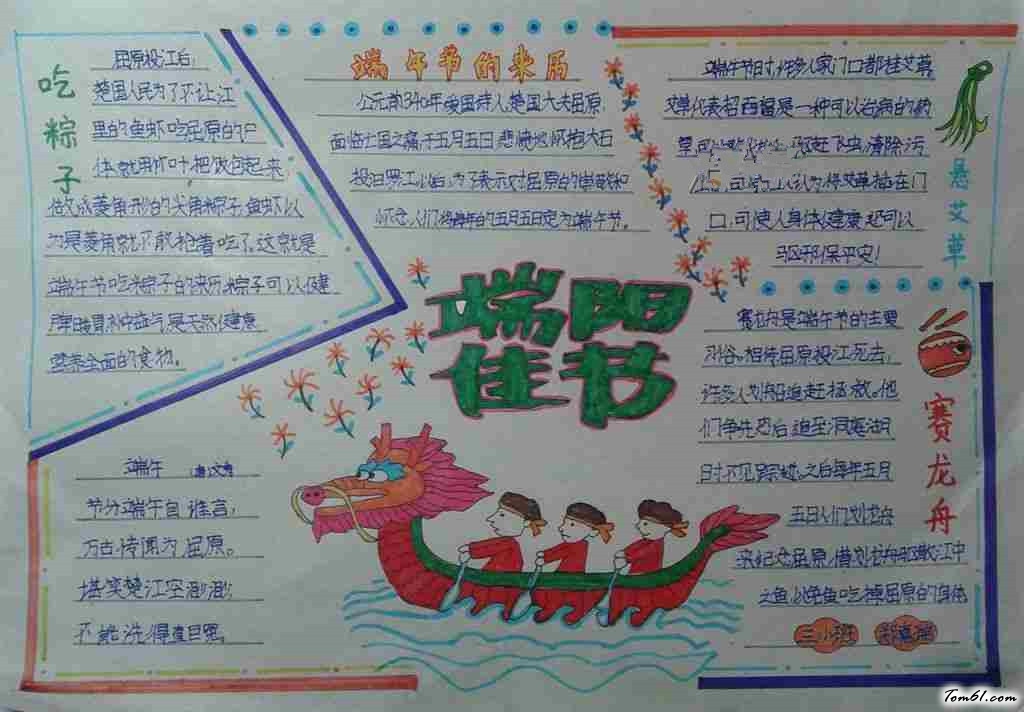 吃粽子
屈原投江后，
楚国人民为了不让江
里的鱼虾吃屈原的尸
体就用竹叶把饭包起来，
做成菱角形的尖角粽子，鱼虾以
为是菱角就不敢抢着吃了，这就是
端午节吃粽子的来历，粽子可以健
脾暖胃补中益气是天然健康
营养全面的食物。
端午节的来历
公元前340年爱国诗人楚国大夫屈原，
面临亡国之痛于五月五日悲愤地怀抱大石
投汨罗江以后，为了表示对屈原的尊敬和
怀念，人们将每年的五月五日定为端午节。
悬艾草
端午节时，许多人家门口都挂艾草，
艾草代表招百福是一种可以治病的药
驱赶飞虫，清除污
认为将艾草插在门
口，可使人身体健康还可以
驱邪保平安！
端阳
佳节
赛龙舟
赛龙舟是端午节的主要
习俗。相传屈原投江死去，
许多人划船追赶拯救。他
们争先恐后追至洞庭湖
时不见踪迹。之后每年五月
五日人们划龙舟
来纪念屈原，借划龙舟驱散江中
之鱼以免鱼吃掉屈原的身体
三小班
端午 唐文秀
节分端午自谁言，
万古传闻为屈原。
堪笑楚江空渺渺，
不能洗得直臣冤。
Tom61.com